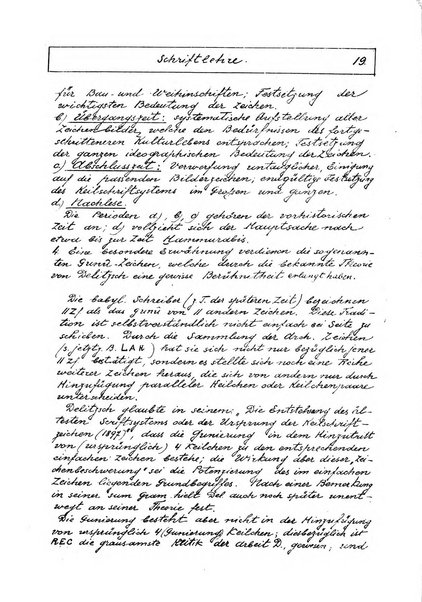 Schriftlehre.
19
für Bau- und Weihinschriften; Festsetzung der
wichtigsten Bedeutung der Zeichen.
b) Übergangszeit: systematische Aufstellung aller
Zeichenbilder, welche den Bedürfnissen des fortge-
schritteneren Kulturlebens entsprachen; Festsetzung
der ganzen ideographischen Bedeutung der Zeichen.
c) Abschlusszeit: Verwerfung untauglicher, Einigung
auf die passenden Bilderzeichen, endgültige Festsetzung
des Keilschriftsystems im Großen und ganzen.
d) Nachlese.
Die Perioden a), b), c) gehören der vorhistorischen
Zeit an; d) vollzieht sich der Hauptsache nach
etwa bis zur Zeit Hammurabis.
4. Eine besondere Erwähnung verdienen die sogenann-
ten Gunû-Zeichen, welche durch die bekannte Theorie
von Delitzsch eine gewisse Berühmtheit erlangt haben.
Die babyl. Schreiber (z. T. der späteren Zeit) bezeichnen
11 Z) als das gunû von 11 andern Zeichen. Diese Tradi-
tion ist selbstverständlich nicht einfach bei Seite zu
schieben. Durch die Sammlung der arch. Zeichen
(s. jetzt B. LAK) hat sie sich nicht nur bezüglich jener
11 Z) bestätigt, sondern es stellte sich noch eine Reihe
weiterer Zeichen heraus, die sich von andern nur durch
Hinzufügung paralleler Keilchen oder Keilchenpaare
unterscheiden.
Delitzsch glaubte in seinem: „Die Entstehung des äl-
testen Schriftsystems oder der Ursprung der Keilschrift-
zeichen (1897)", dass die Gunierung in dem Hinzutritt
von (ursprünglich) 4 Keilchen zu den entsprechenden
einfachen Zeichen bestehe; die Wirkung aber dieser „Zei-
chenbeschwerung" sei die Potenzierung des im einfachen
Zeichen liegenden Grundbegriffes. Nach einer Bemerkung
in seiner sum Gram hielt Del auch noch später unent-
wegt an seiner Theorie fest.
Die Gunierung besteht aber nicht in der Hinzufügung
von ursprünglich 4 (Gunierung) Keilchen; diesbezüglich ist
REC die grausamste Kritik der Arbeit D., gewesen; und